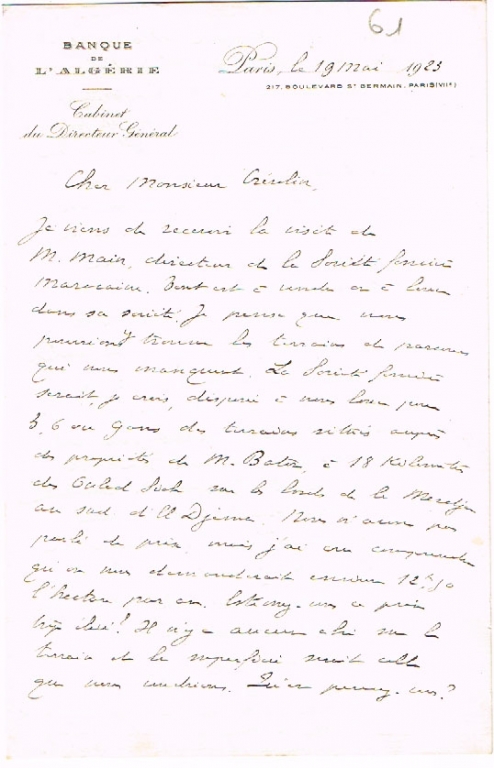 61
BANQUE
DE
L'ALGÉRIE
Cabinet
du Directeur Général
Paris, le 19 mai 1923
217, BOULEVARD ST GERMAIN, PARIS (VIIe)
Cher Monsieur
Je viens de recevoir la visite de
M. Main, directeur de la Société foncière
marocaine. Tout est à vendre ou à louer
dans sa société. Je pense que nous
pourrions y trouver les terrains de parcours
qui nous manquent. La Société foncière
serait, je crois, disposée à nous louer pour
3, 6 ou 9 ans des terrains situés auprès
des propriétés de M. à 18 Kilomètres
des Ouled sur les bords de la Merdja
au sud d'El Djema. Nous n'avons pas
parlé de prix, mais j'ai cru comprendre
qu'on nous demanderait environ 12 f. 50
l'hectare par an. Estimez-vous ce prix
trop élevé? Il n'y a aucun abri sur le
terrain et la superficie serait celle
que nous voudrions. Qu'en pensez-vous?